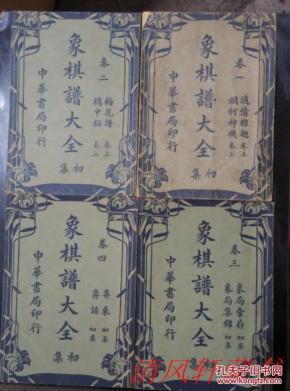 卷二
梅花譜 卷上
橘中秘 卷上
象棋譜大全
初集
中華書局印行
卷一
適情雅趣 卷上
爛柯神機 卷上
象棋譜大全
初集
中華書局印行
卷四
弈乘 初集
弈話 初集
象棋譜大全
初集
中華書局印行
卷三
象局彙存 初集
象局集錦 初集
象棋譜大全
初集
中華書局印行
孔夫子旧书网